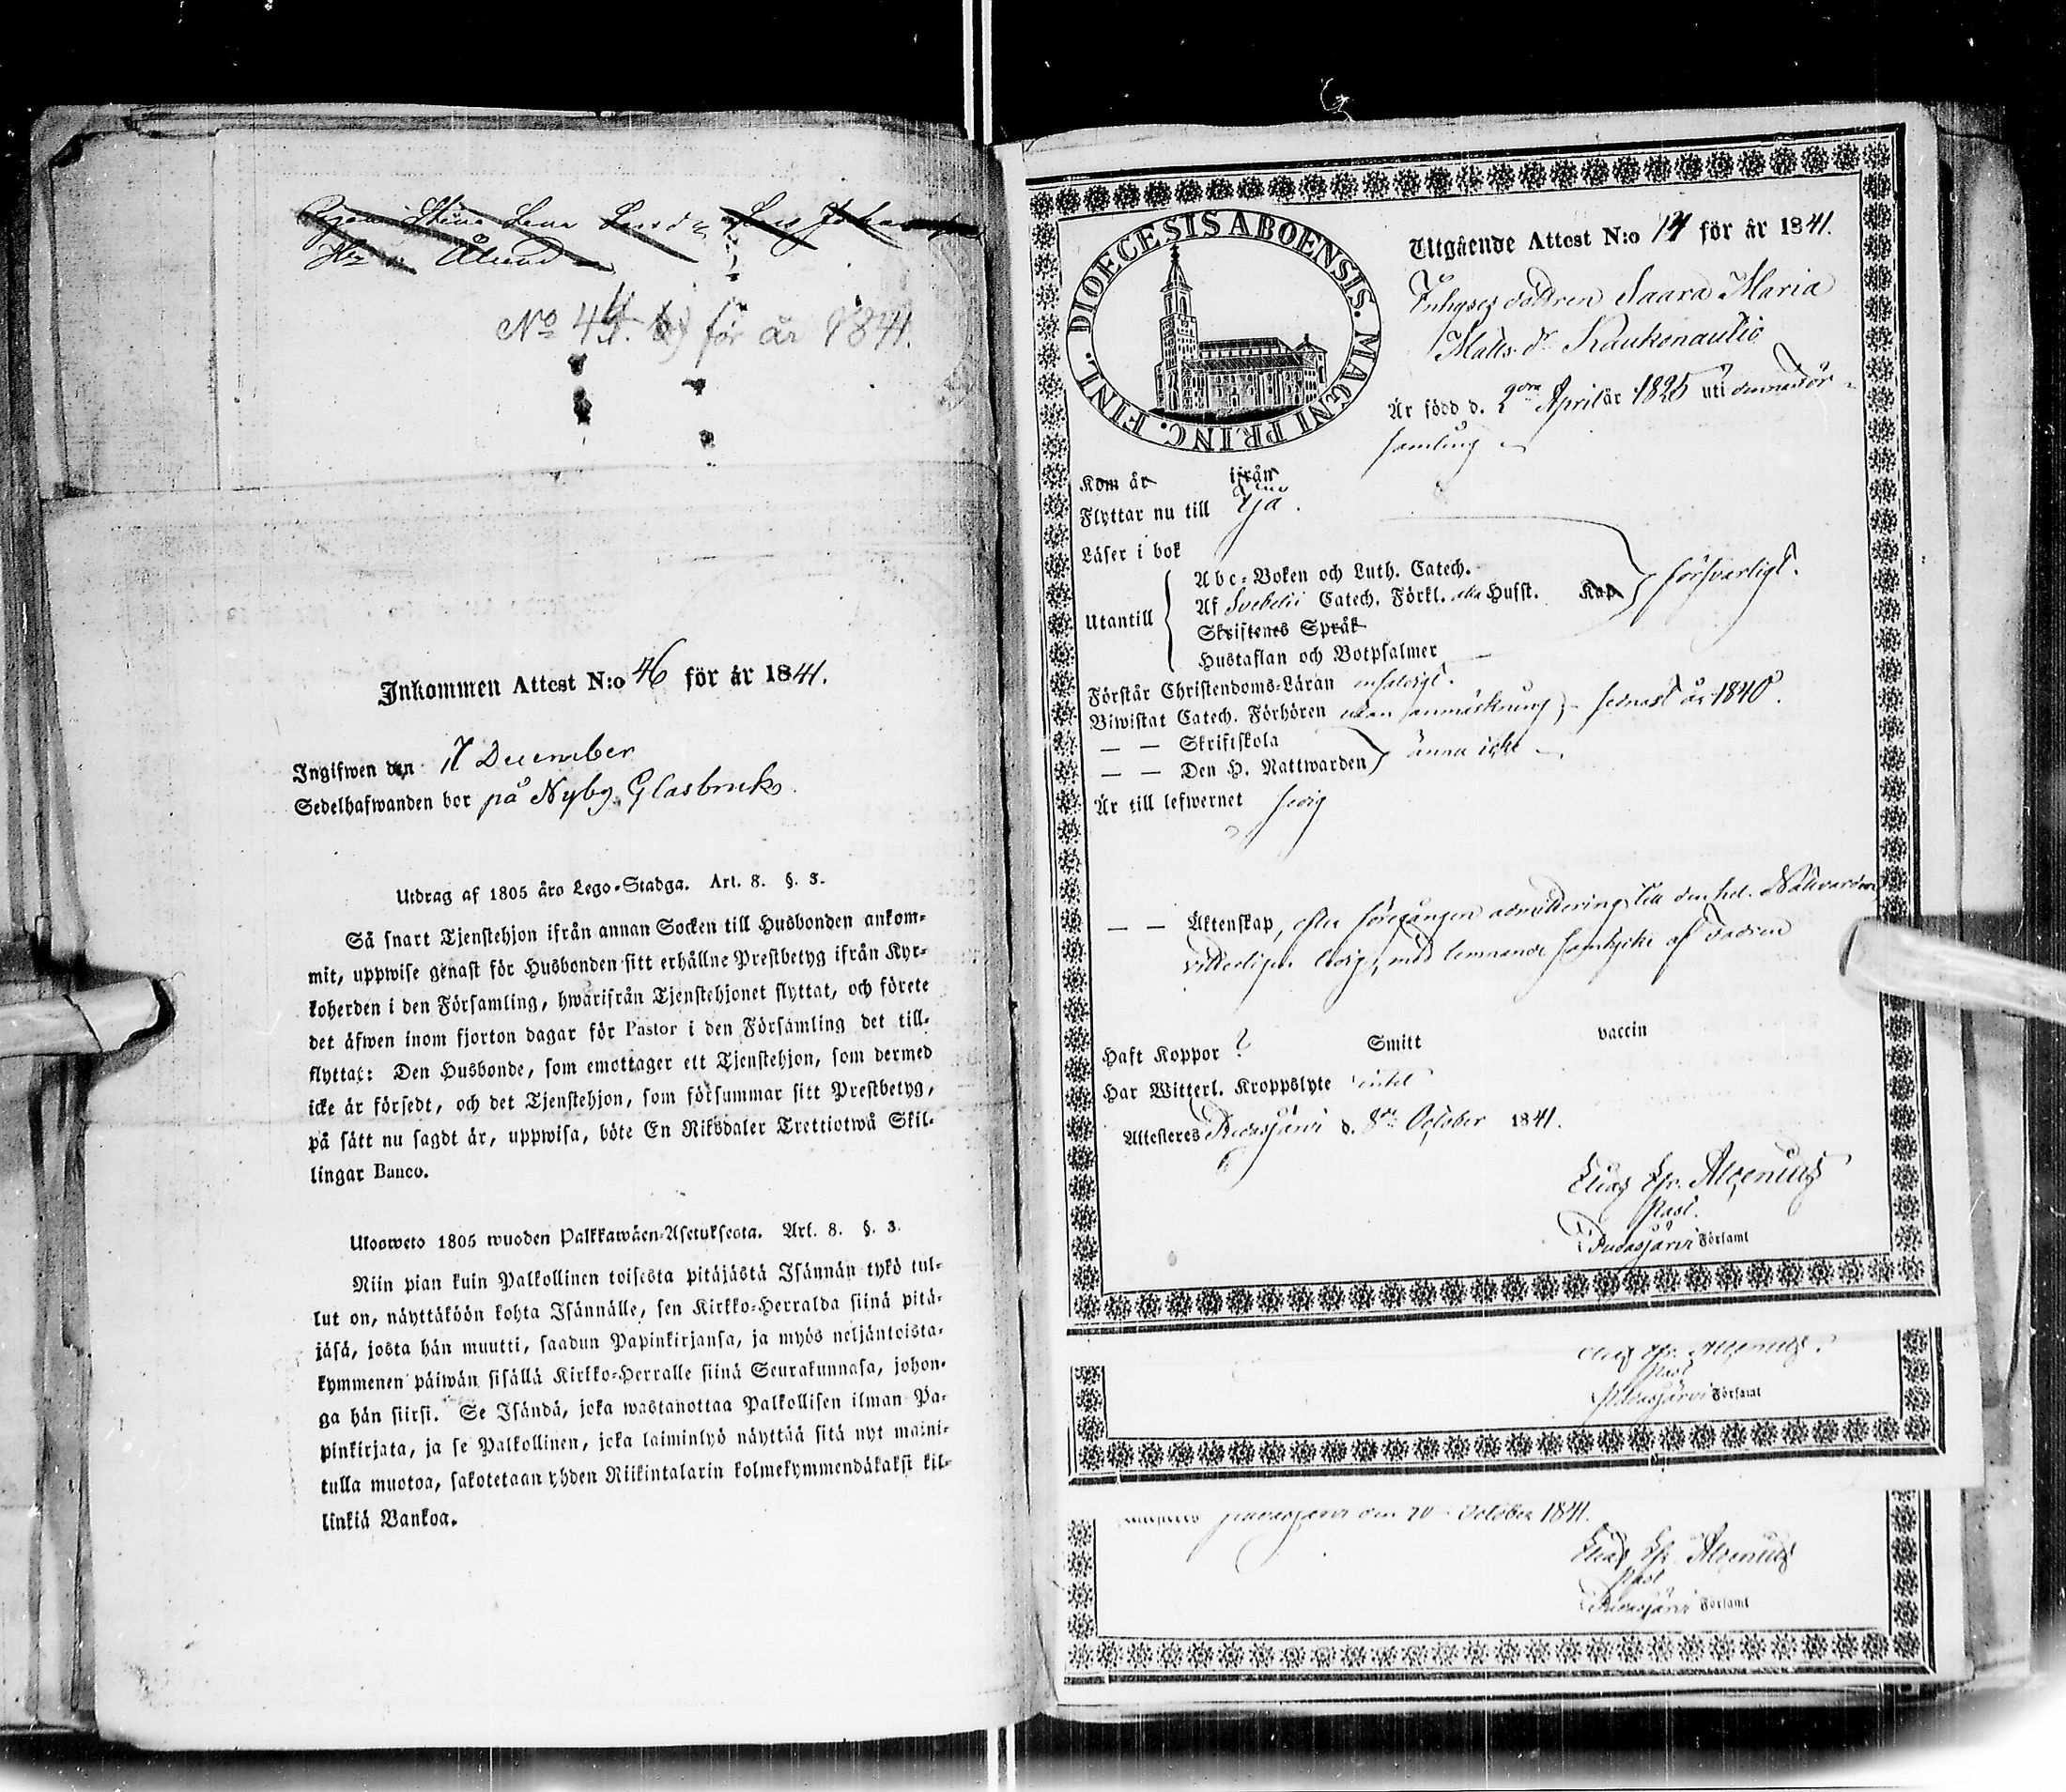 No 44. b) för år 1841.
Inkommen Attest N:o 46 för år 1841.
Ingifwen den 7 December
Sedelhafwanden bor på Nyby Glasbruk
Utdrag af 1805 års Lego-Stadga. Art. 8. §. 3.
Så snart Tjenstehjon ifrån annan Socken till Husbonden ankom-
mit, uppwise genast för Husbonden sitt erhållne Prestbetyg ifrån Kyr-
koherden i den Församling, hwarifrån Tjenstehjonet flyttat, och förete
det äfwen inom fjorton dagar för Pastor i den Församling det till-
flyttat: Den Husbonde, som emottager ett Tjenstehjon, som dermed
icke är försedt, och det Tjenstehjon, som försummar sitt Prestbetyg,
på sätt nu sagdt är, uppwisa, böte En Riksdaler Trettiotwå Skil-
lingar Banco.
Ulosweto 1805 wuoden Palkkawäen-Asetuksesta. Art. 8. §. 3.
Niin pian kuin Palkollinen toisesta pitäjästä Isännän tykö tul-
lut on, näyttäköön kohta Isännälle, sen Kirkko-Herralda siinä pitä-
jäsä, josta hän muutti, saadun Papinkirjansa, ja myös neljäntoista-
kymmenen päiwän sisällä Kirkko-Herralle siinä Seurakunnasa, johon-
ga hän siirsi. Se Isändä, joka wastanottaa Palkollisen ilman Pa-
pinkirjata, ja se Palkollinen, joka laiminlyö näyttää sitä nyt maini-
tulla muotoa, sakotetaan yhden Riikintalarin kolmekymmendäkaksi kil-
linkiä Bankoa.
DIOECESIS ABOENSIS. MAGNI PRINC. FINL.
Utgående Attest N:o 14 för år 1841.
Inhyses dottren Saara Maria
Matts dr Kaukonautio
Är född d. April år 1825 uti denna för-
samling
Kom år ifrån
Flyttar nu till Ijo.
Läser i bok
Utantill
Abc-Boken och Luth. Catech.
Af Svebelii Catech. Förkl. Husst. Kap
försvarligt.
Skriftenes Språk
Hustaflan och Botpsalmer
Förstår Christendoms-Läran enfaldigt.
Biwistat Catech. Förhören utan anmärkning, senast år 1840.
— — Skriftskola
— — Den H. Nattwarden
ännu icke
Är till lefwernet sedig
— — Äktenskap, efter föregången admittering till den hel. Nattvarden
villkorligen ledig, med lemnande samtycke af Fadren
Haft Koppor ? Smitt vaccin
Har Witterl. Kroppslyte intet
Attesteres Pudasjärvi d. 8de October 1841.
Elias Efr. Alcenius
Past.
Pudasjärvi Församl
Elias Efr. Alcenius.
Past
Pudasjärvi Församl
Pudasjärvi den 20 October 1841.
Elias Efr. Alcenius
Past
Pudasjärvi Församl